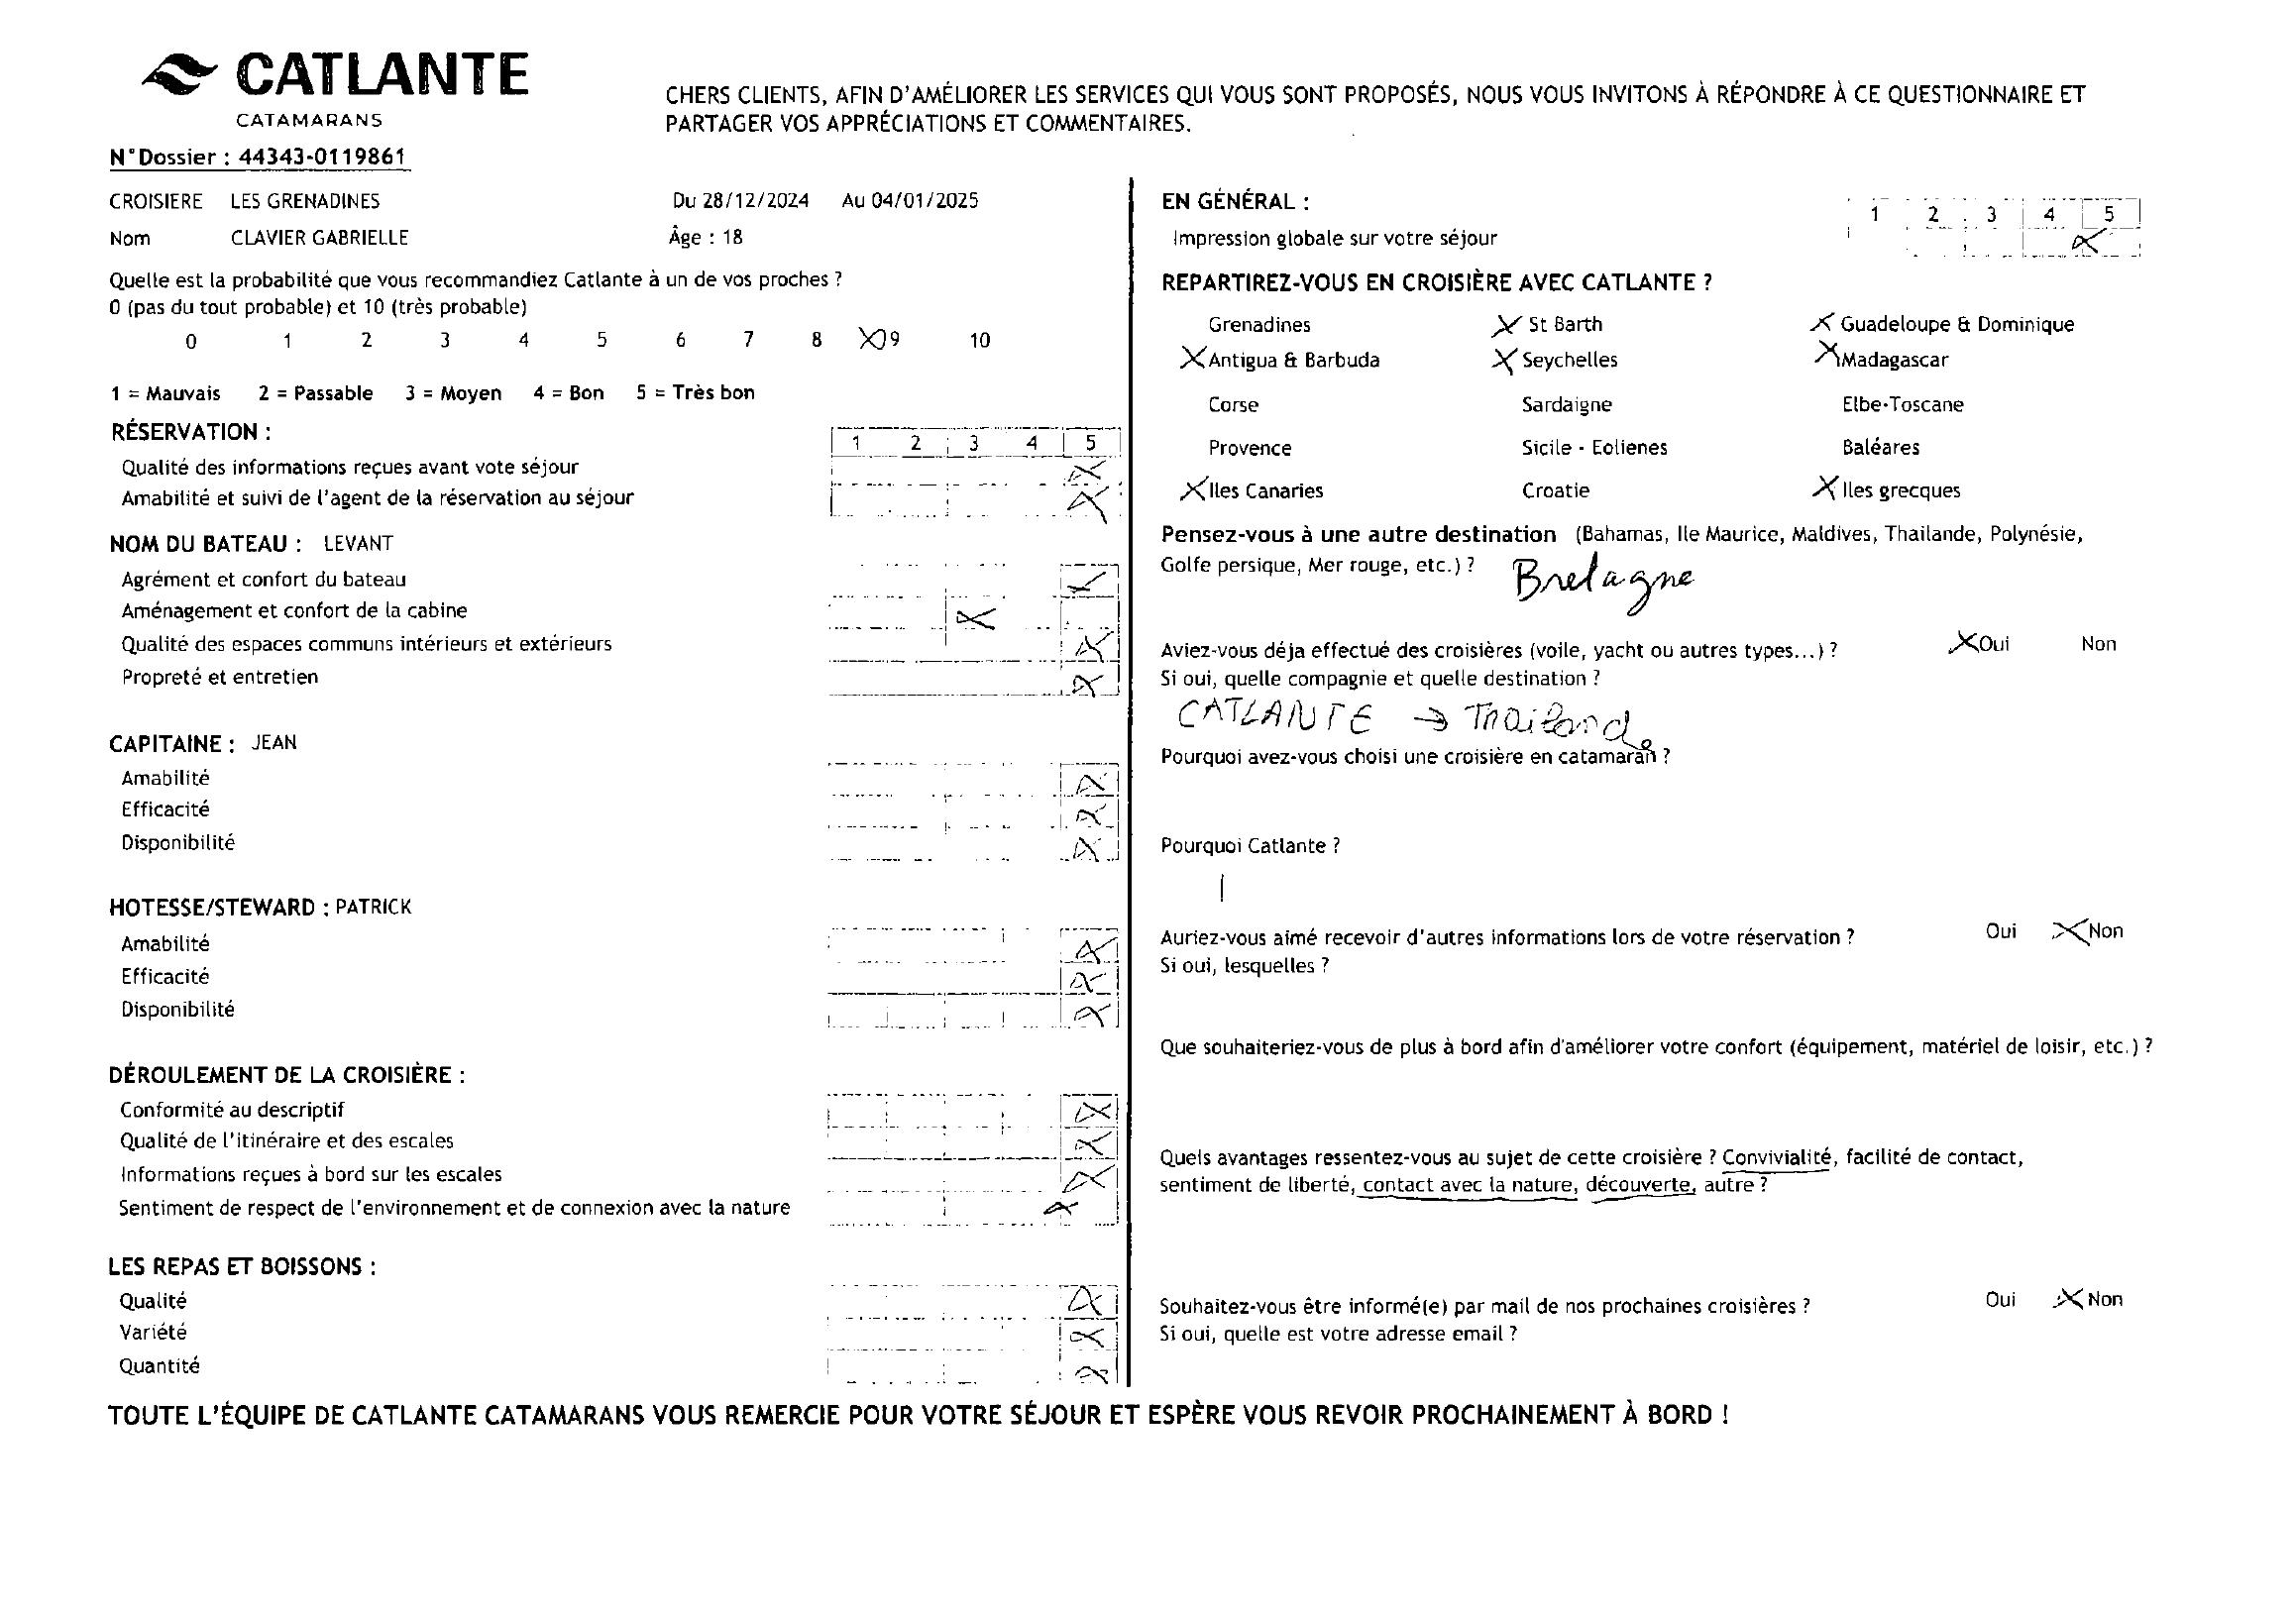 CATLANTE
CATAMARANS
CHERS CLIENTS, AFIN D'AMÉLIORER LES SERVICES QUI VOUS SONT PROPOSÉS, NOUS VOUS INVITONS À RÉPONDRE À CE QUESTIONNAIRE ET
PARTAGER VOS APPRÉCIATIONS ET COMMENTAIRES.
N°Dossier : 44343-0119861
CROISIERE LES GRENADINES Du 28/12/2024 Au 04/01/2025
Nom CLAVIER GABRIELLE Âge : 18
Quelle est la probabilité que vous recommandiez Catlante à un de vos proches ?
0 (pas du tout probable) et 10 (très probable)
0 1 2 3 4 5 6 7 8 X 9 10
1 = Mauvais 2 = Passable 3 = Moyen 4 = Bon 5 = Très bon
RÉSERVATION :
1 2 3 4 5
Qualité des informations reçues avant vote séjour X
Amabilité et suivi de l'agent de la réservation au séjour X
NOM DU BATEAU : LEVANT
Agrément et confort du bateau X
Aménagement et confort de la cabine X
Qualité des espaces communs intérieurs et extérieurs X
Propreté et entretien X
CAPITAINE : JEAN
Amabilité X
Efficacité X
Disponibilité X
HOTESSE/STEWARD : PATRICK
Amabilité X
Efficacité X
Disponibilité X
DÉROULEMENT DE LA CROISIÈRE :
Conformité au descriptif X
Qualité de l'itinéraire et des escales X
Informations reçues à bord sur les escales X
Sentiment de respect de l'environnement et de connexion avec la nature X
LES REPAS ET BOISSONS :
Qualité X
Variété X
Quantité X
EN GÉNÉRAL :
1 2 3 4 5
Impression globale sur votre séjour X
REPARTIREZ-VOUS EN CROISIÈRE AVEC CATLANTE ?
Grenadines X St Barth X Guadeloupe & Dominique
X Antigua & Barbuda X Seychelles X Madagascar
Corse Sardaigne Elbe-Toscane
Provence Sicile - Eolienes Baléares
X Iles Canaries Croatie X Iles grecques
Pensez-vous à une autre destination (Bahamas, Ile Maurice, Maldives, Thailande, Polynésie,
Golfe persique, Mer rouge, etc.) ? Bretagne
Aviez-vous déja effectué des croisières (voile, yacht ou autres types...) ? X Oui Non
Si oui, quelle compagnie et quelle destination ?
CATLANTE → Thailande
Pourquoi avez-vous choisi une croisière en catamaran ?
Pourquoi Catlante ?
Auriez-vous aimé recevoir d'autres informations lors de votre réservation ? Oui X Non
Si oui, lesquelles ?
Que souhaiteriez-vous de plus à bord afin d'améliorer votre confort (équipement, matériel de loisir, etc.) ?
Quels avantages ressentez-vous au sujet de cette croisière ? Convivialité, facilité de contact,
sentiment de liberté, contact avec la nature, découverte, autre ?
Souhaitez-vous être informé(e) par mail de nos prochaines croisières ? Oui X Non
Si oui, quelle est votre adresse email ?
TOUTE L'ÉQUIPE DE CATLANTE CATAMARANS VOUS REMERCIE POUR VOTRE SÉJOUR ET ESPÈRE VOUS REVOIR PROCHAINEMENT À BORD !